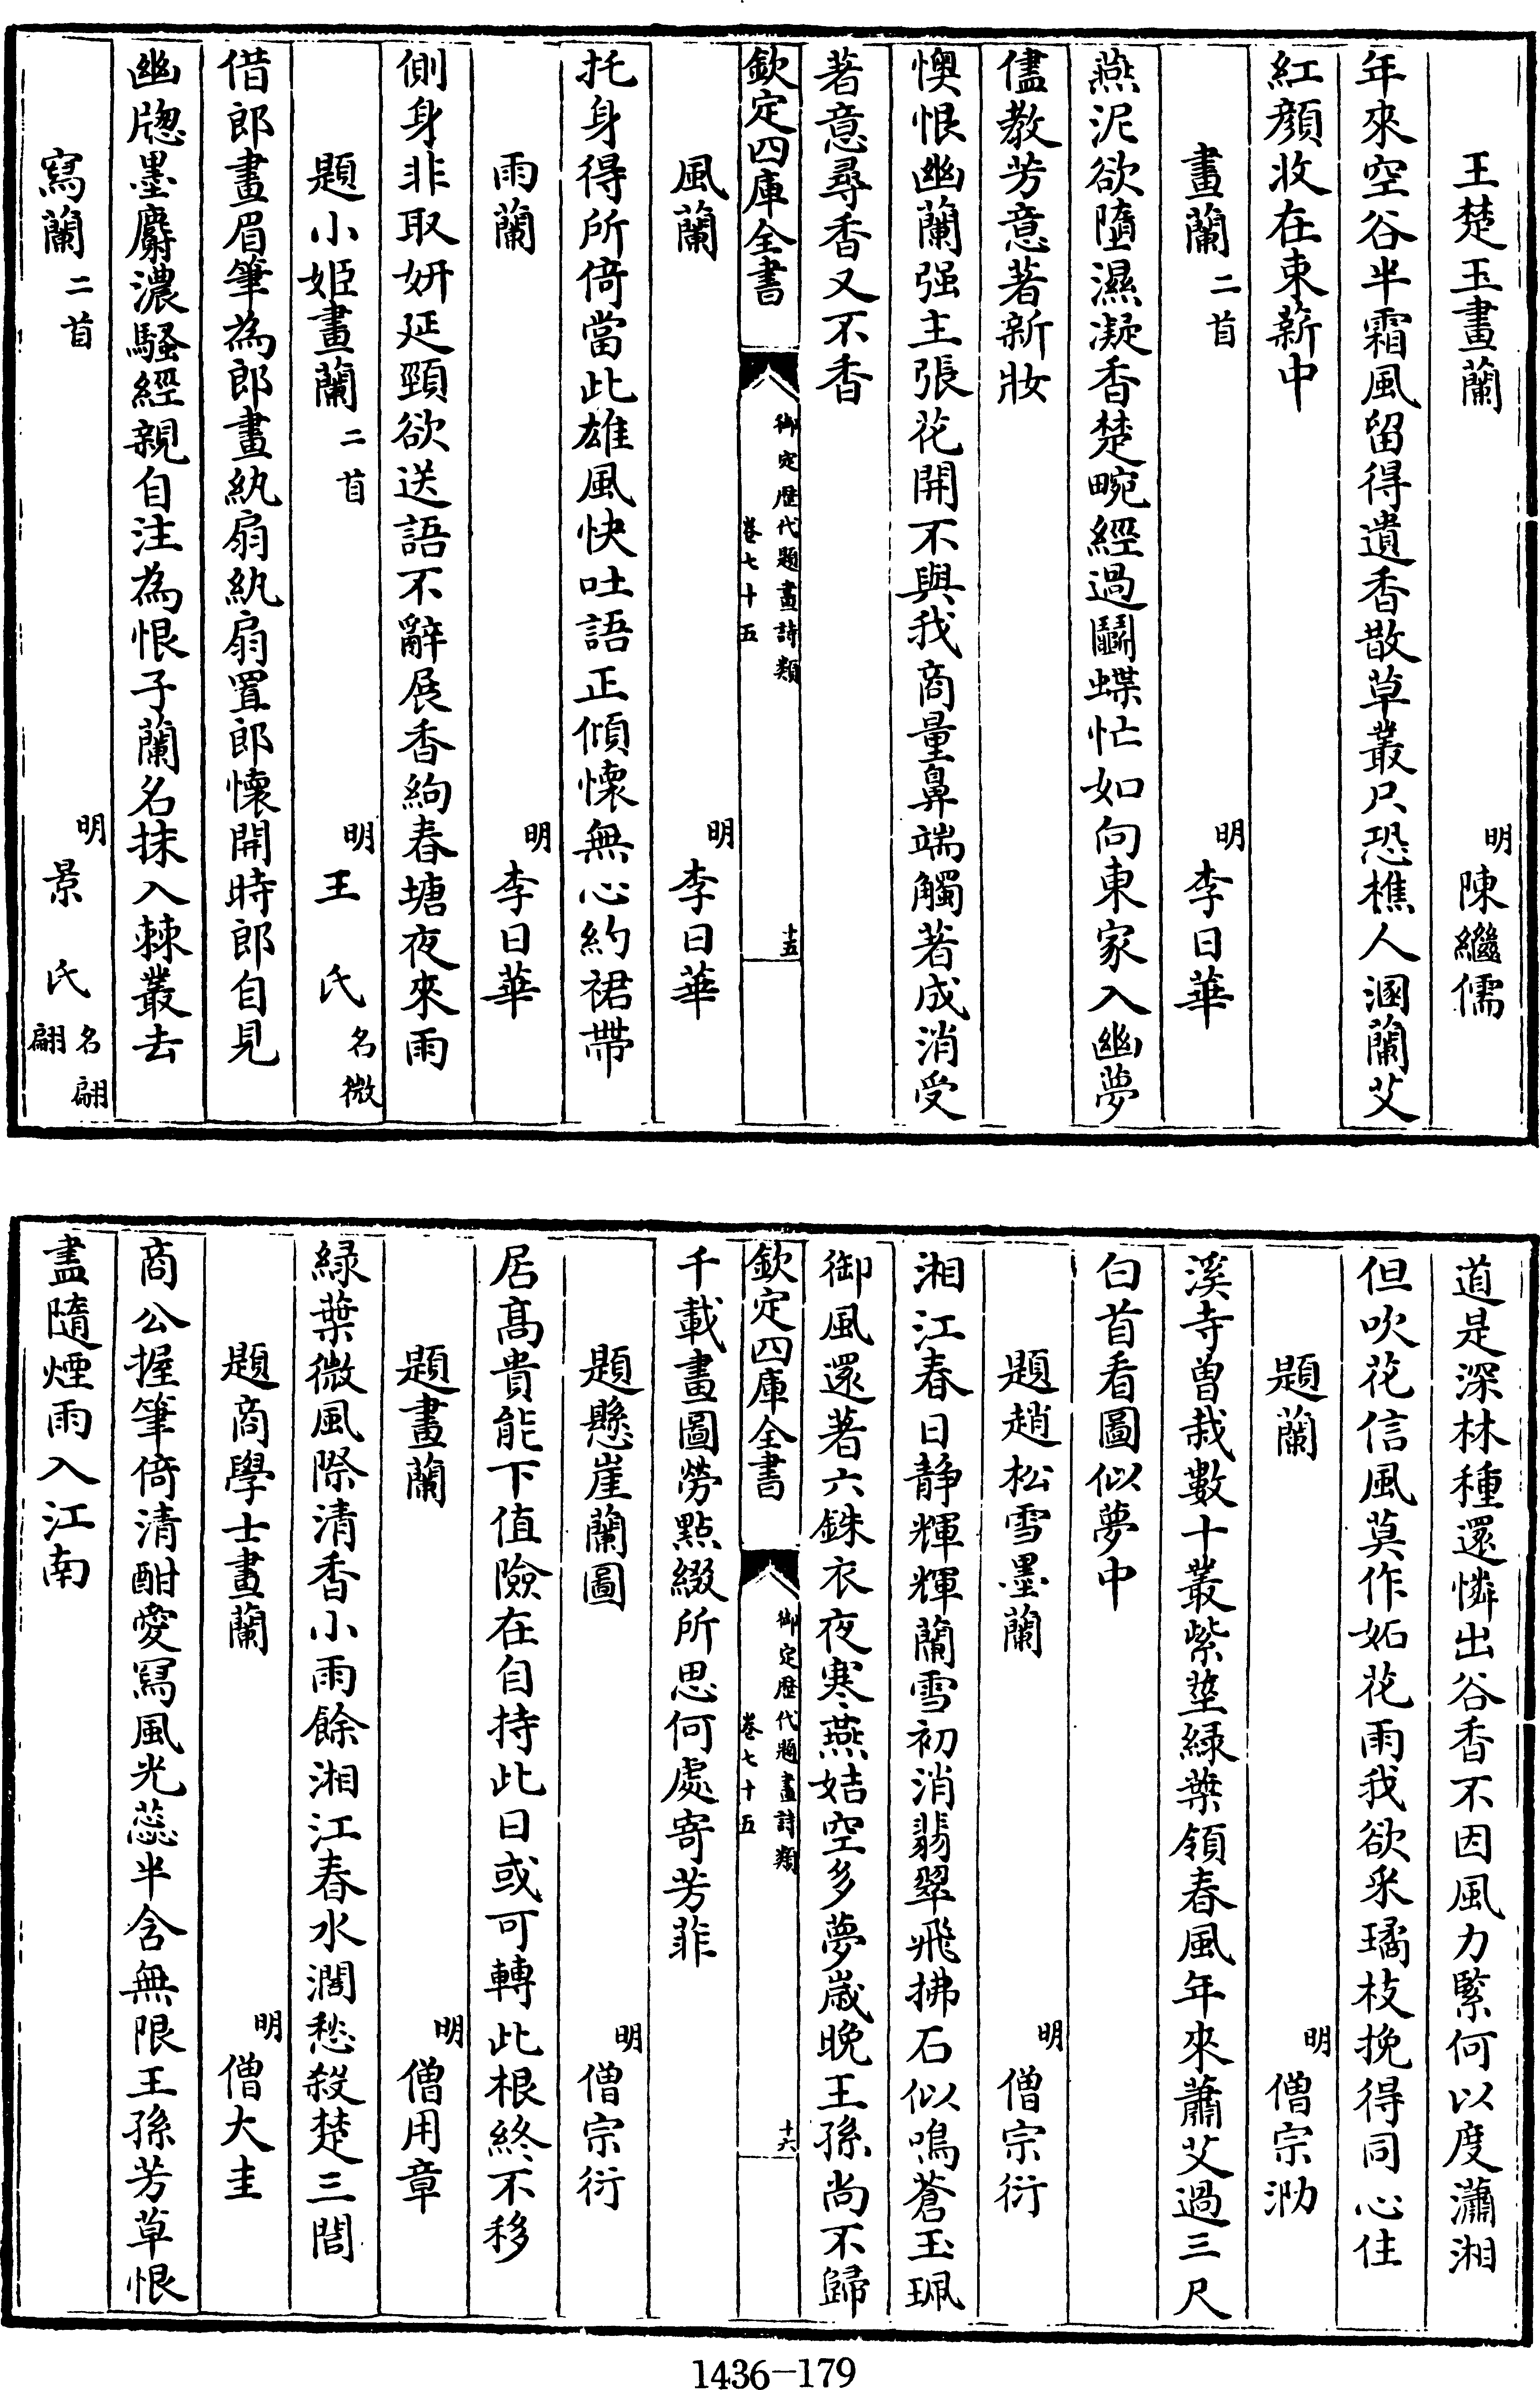 王楚玉畫蘭 明 陳繼儒
年來空谷半霜風留得遺香散草叢只恐樵人溷蘭艾
紅顔收在束薪中
畫蘭 二首 明 李日華
燕泥欲墮濕凝香楚畹經過鬬蝶忙如向東家入幽夢
儘教芳意著新妝
懊恨幽蘭强主張花開不與我商量鼻端觸著成消受
著意尋香又不香
欽定四庫全書 御定歴代題畫詩類 卷七十五 十五
風蘭 明 李日華
托身得所倚當此雄風快吐語正傾懷無心約裙帶
雨蘭 明 李日華
側身非取妍延頸欲送語不辭展香絇春塘夜來雨
題小姬畫蘭 二首 明 王氏 名微
借郎畫眉筆為郎畫紈扇紈扇置郎懷開時郎自見
幽牎墨麝濃騷經親自注為恨子蘭名抹入棘叢去
寫蘭 二首 明 景氏 名翩翩
道是深林種還憐出谷香不因風力緊何以度瀟湘
但吹花信風莫作妬花雨我欲采璚枝挽得同心住
題蘭 明 僧宗泐
溪寺曽栽數十叢紫莖緑葉領春風年來蕭艾過三尺
白首看圖似夢中
題趙松雪墨蘭 明 僧宗衍
湘江春日静輝輝蘭雪初消翡翠飛拂石似鳴蒼玉珮
御風還著六銖衣夜寒燕姞空多夢嵗晚王孫尚不歸
欽定四庫全書 御定歴代題畫詩類 卷七十五 十六
千載畫圖勞點綴所思何處寄芳菲
題懸崖蘭圖 明 僧宗衍
居髙貴能下值險在自持此日或可轉此根終不移
題畫蘭 明 僧用章
緑葉微風際清香小雨餘湘江春水濶愁殺楚三閭
題商學士畫蘭 明 僧大圭
商公握筆倚清酣愛冩風光蕊半含無限王孫芳草恨
盡隨煙雨入江南
1436-179